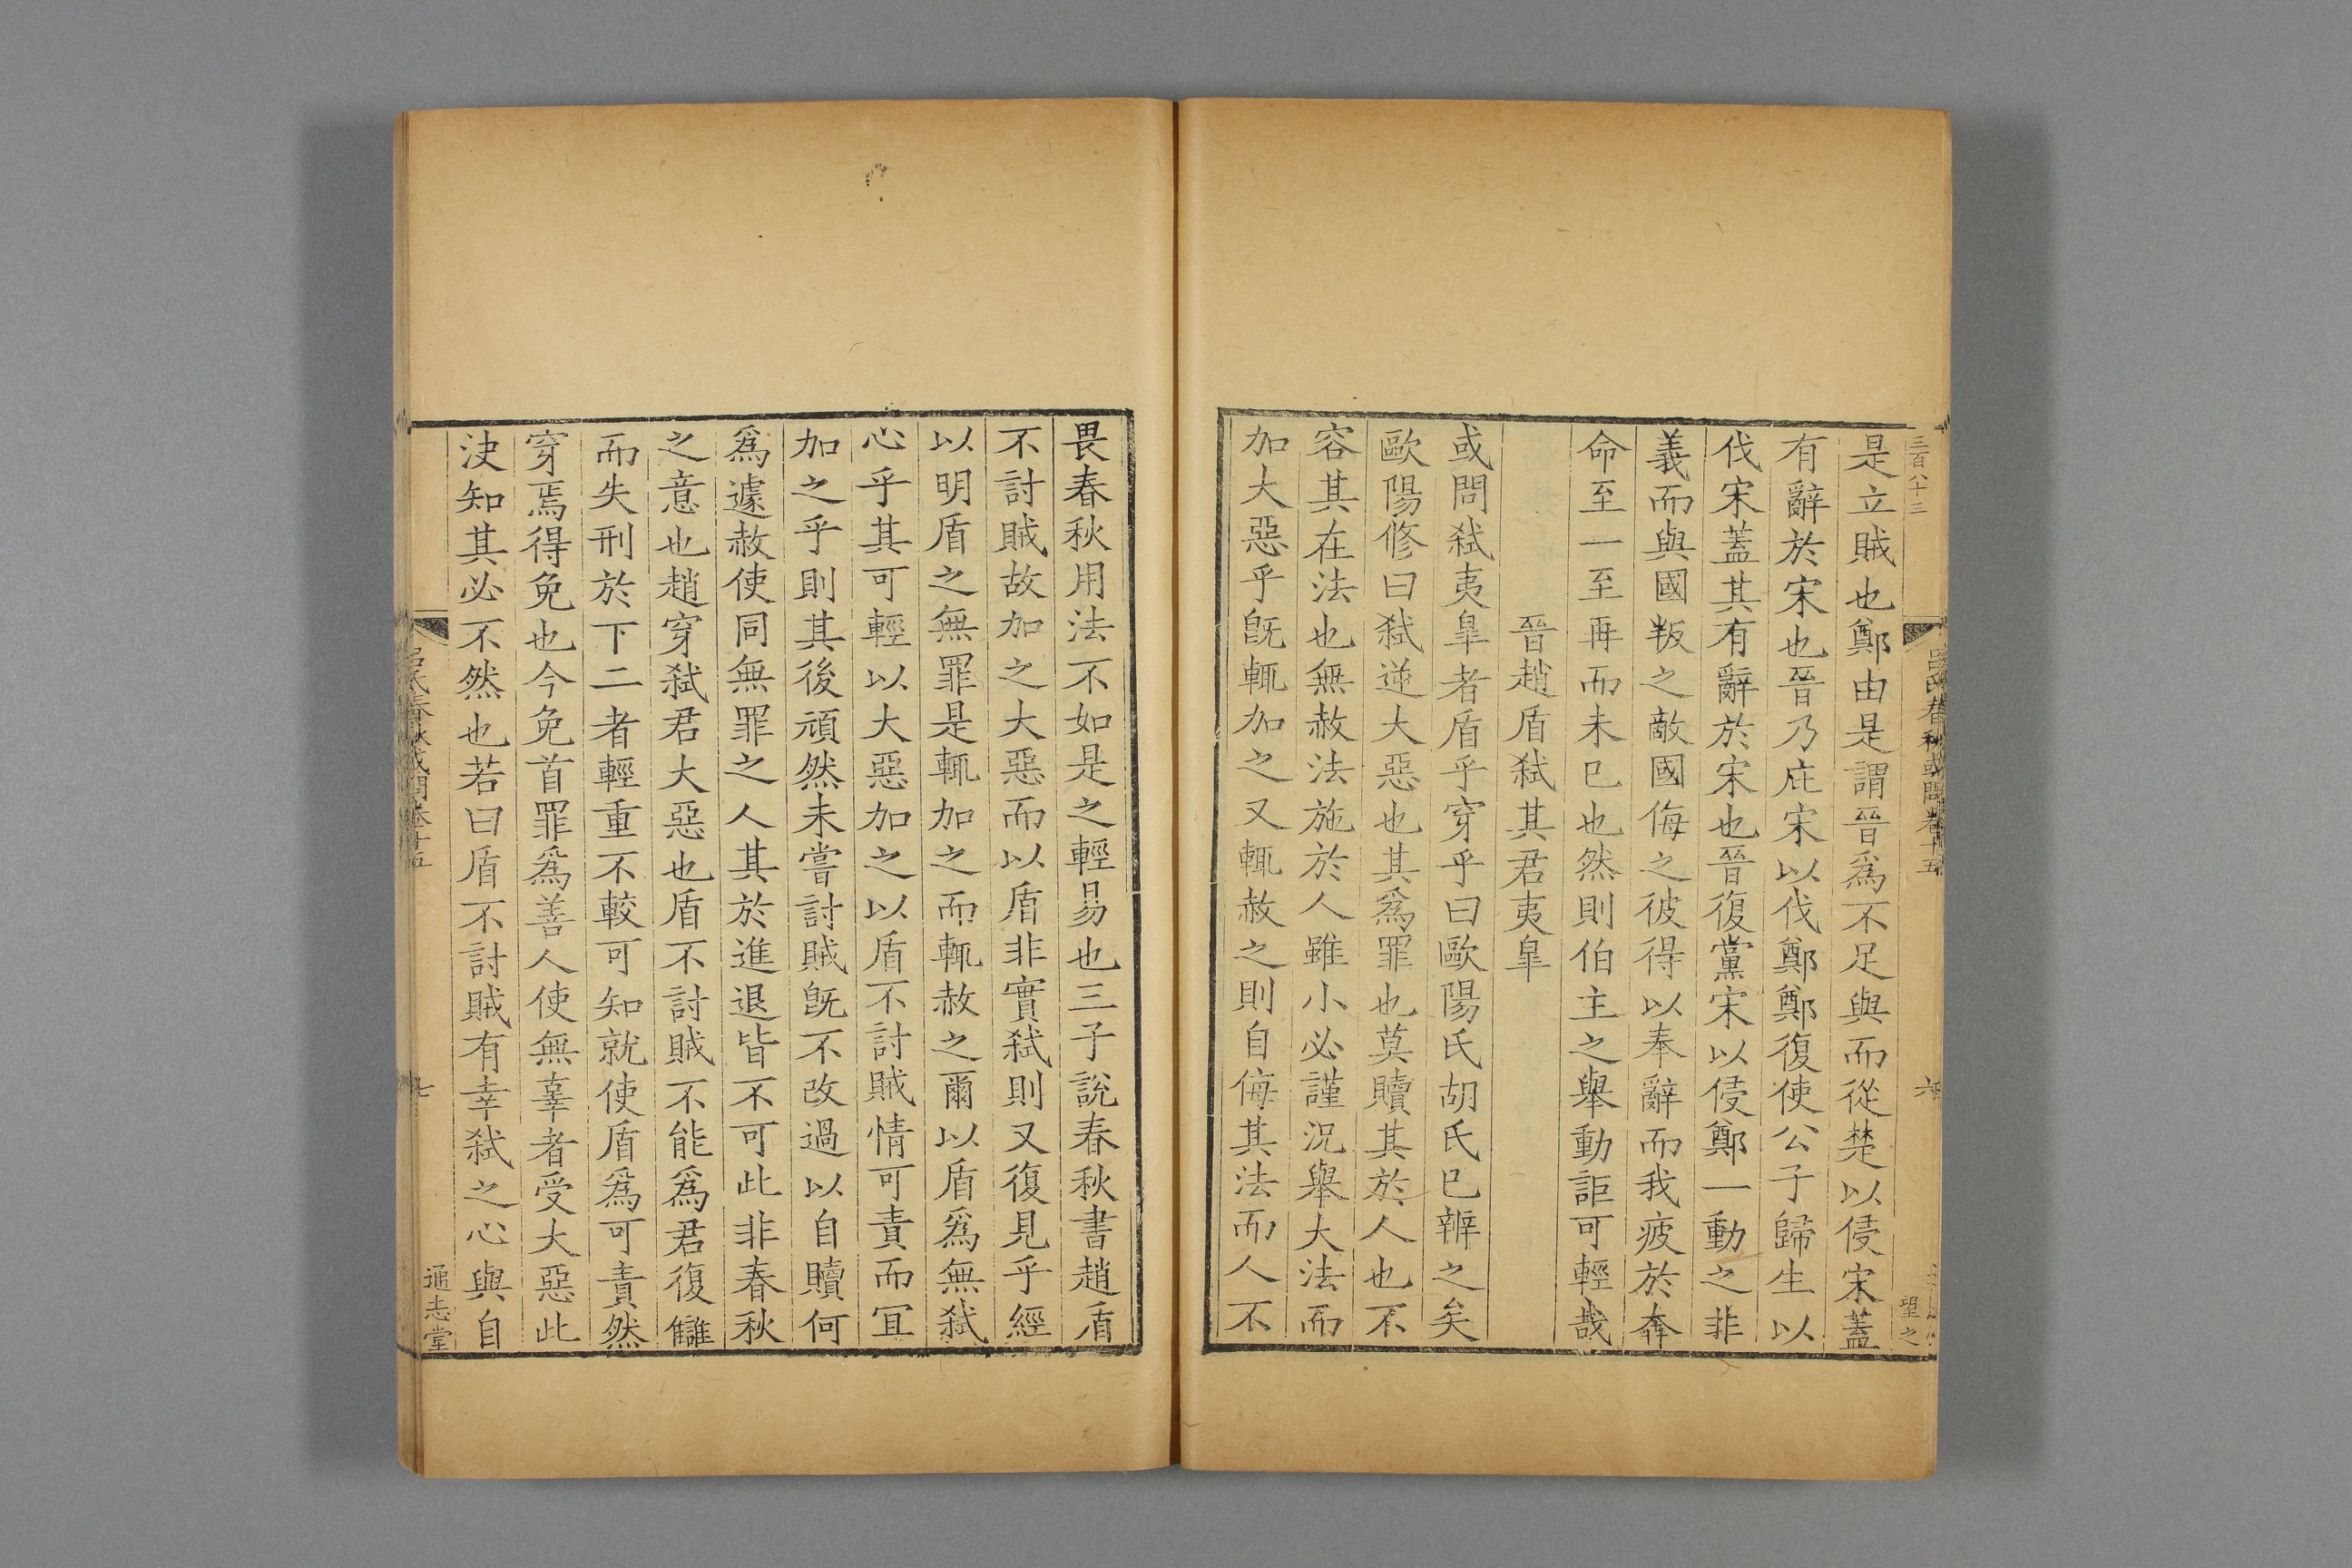 三百八十三
呂氏春秋或問卷十五
六
望之
是立賊也鄭由是謂晉爲不足與而從楚以侵宋蓋
有辭於宋也晉乃庇宋以伐鄭鄭復使公子歸生以
伐宋蓋其有辭於宋也晉復黨宋以侵鄭一動之非
義而與國叛之敵國侮之彼得以奉辭而我疲於奔
命至一至再而未已也然則伯主之舉動詎可輕哉
晉趙盾弒其君夷皐
或問弒夷皐者盾乎穿乎曰歐陽氏胡氏已辨之矣
歐陽修曰弒逆大惡也其爲罪也莫贖其於人也不
容其在法也無赦法施於人雖小必謹況舉大法而
加大惡乎旣輒加之又輒赦之則自侮其法而人不
畏春秋用法不如是之輕易也三子說春秋書趙盾
不討賊故加之大惡而以盾非實弒則又復見乎經
以明盾之無罪是輒加之而輒赦之爾以盾爲無弒
心乎其可輕以大惡加之以盾不討賊情可責而宜
加之乎則其後頑然未嘗討賊旣不改過以自贖何
爲遽赦使同無罪之人其於進退皆不可此非春秋
之意也趙穿弒君大惡也盾不討賊不能爲君復讎
而失刑於下二者輕重不較可知就使盾爲可責然
穿焉得免也今免首罪爲善人使無辜者受大惡此
決知其必不然也若曰盾不討賊有幸弒之心與自
呂氏春秋或問卷十五
七
通志堂